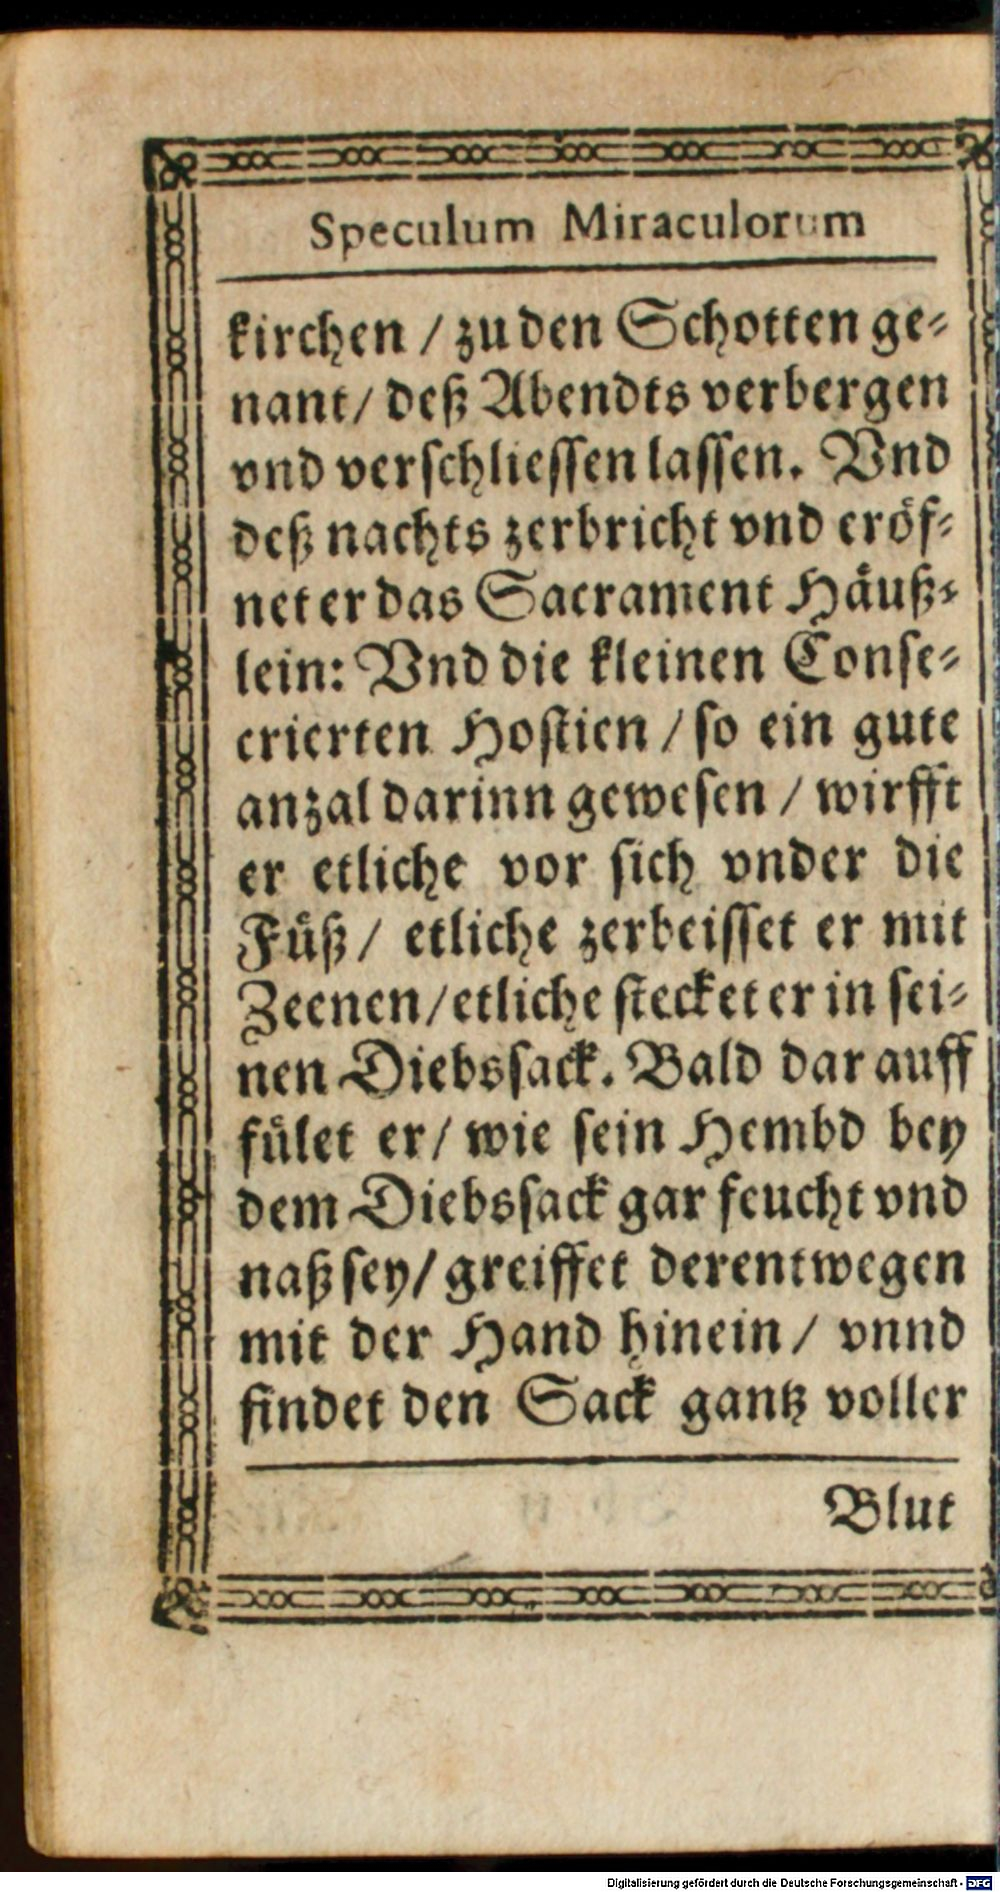 Speculum Miraculorum
kirchen / zu den Schotten ge⸗
nant / deß Abendts verbergen
vnd verschliessen lassen. Vnd
deß nachts zerbricht vnd eröf⸗
net er das Sacrament Häuß⸗
lein: Vnd die kleinen Conse⸗
crierten Hostien / so ein gute
anzal darinn gewesen / wirfft
er etliche vor sich vnder die
Füß / etliche zerbeisset er mit
Zeenen / etliche stecket er in sei⸗
nen Diebssack. Bald dar auff
fület er / wie sein Hembd bey
dem Diebssack gar feucht vnd
naß sey / greiffet derentwegen
mit der Hand hinein / vnnd
findet den Sack gantz voller
Blut
Digitalisierung gefördert durch die Deutsche Forschungsgemeinschaft - DFG